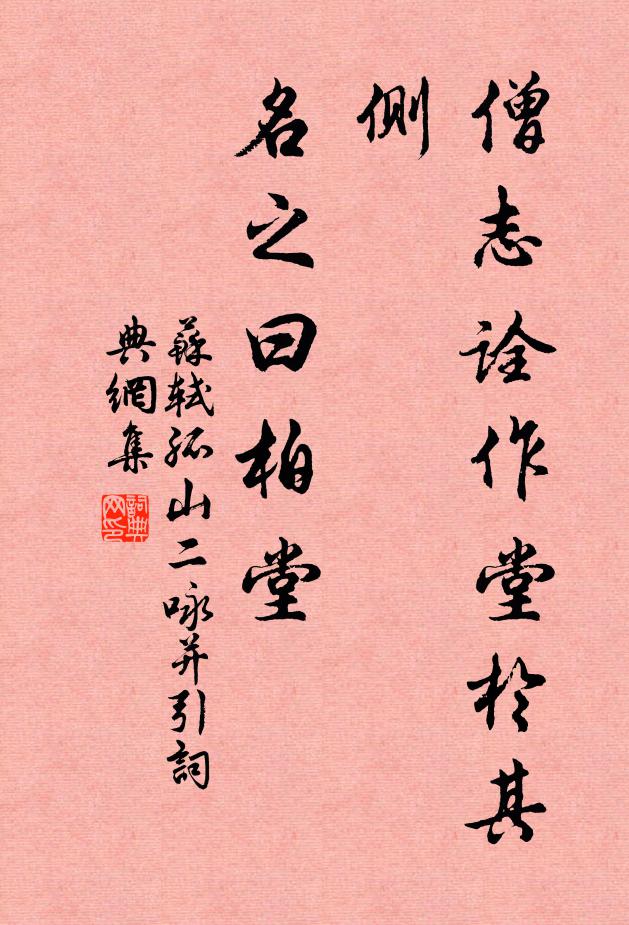 僧志詮作堂於其
側
名之曰柏堂
蘇軾孤山二咏并引詞
典網集
詞典
网印